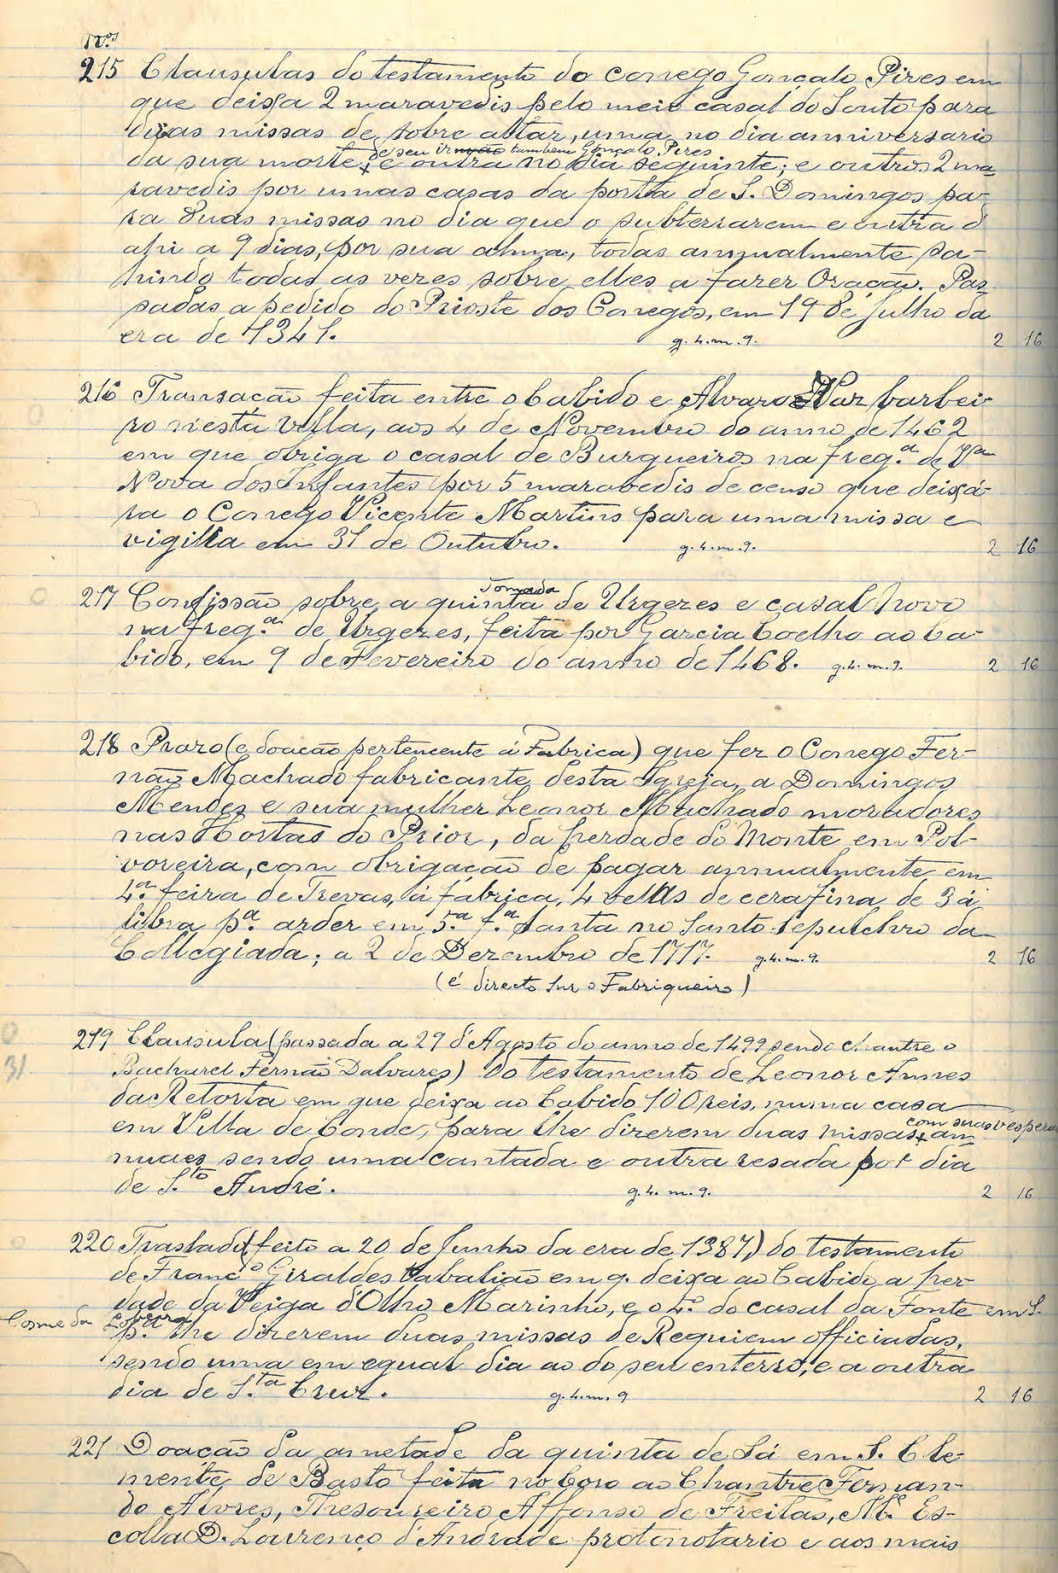 Nos
215 Clausulas do testamento do conego Gonçalo Pires em
que deixa 2 maravedis pelo meio casal do Souto para
duas missas de sobre altar, uma no dia anniversario
de seu irmão tambem Gonçalo Pires
da sua morte, e outra no dia seguinte; e outros 2 ma
ravedis por umas casas da porta de S. Domingos pa-
ra duas missas no dia que o subterrarem e outra d'
ahi a 9 dias, por sua alma, todas annualmente sa-
hindo todas as vezes sobre elles a fazer Oração. Pas
sadas a pedido do Prioste dos Conegos, em 19 de Julho da
era de 1341. g. 4. m. 9. 2 16
216 Transacão feita entre o Cabido e Alvaro Vaz barbei
ro nesta Villa, aos 4 de Novembro do anno de 1462
em que obriga o casal de Burgueiros na freg.ª de Vª
Nova dos Infantes por 5 maravedis de censo que deixá-
ra o Conego Vicente Martins para uma missa e
vigilia em 31 de Outubro. g. 4. m. 9. 2 16
tomada
217 Confissão sobre a quinta de Urgezes e casal Novo
na freg.ª de Urgezes, feita por Garcia Coelho ao Ca-
bido, em 9 de Fevereiro do anno de 1468. g. 4. m. 9. 2 16
218 Prazo (e doacão pertencente á Fabrica) que fez o Conego Fer-
não Machado fabricante desta Igreja, a Domingos
Mendes e sua mulher Leonor Machado moradores
nas Hortas do Prior, da herdade do Monte em Pol-
voreira, com obrigação de pagar annualmente em
4.ª feira de Trevas, á fabrica, 4 vellas de cera fina de 3 á
libra p.ª arder em 5.ª f.ª Santa no Santo Sepulchro da
Collegiada; a 2 de Dezembro de 1717. g. 4. m. 9. 2 16
(é directo Snr o Fabriqueiro)
219 Clausula (passada a 29 d'Agosto do anno de 1499 sendo chantre o
Bacharel Fernão Dalvares) do testamento de Leonor Annes
da Retorta em que deixa ao Cabido 100 reis, numa casa
com suas vesperas
em Villa de Conde, para lhe dizerem duas missas, an
nuaes sendo uma cantada e outra resada por dia
de S.to André. g. 4. m. 9. 2 16
220 Traslado (feito a 20 de Junho da era de 1387) do testamento
de Franc.º Giraldes tabalião em q. deixa ao Cabido a her-
dade da Veiga d'Olho Marinho, e o 4.º do casal da Fonte em S.
Cosme da Lobeira
p.ª lhe dizerem duas missas de Requiem officiadas,
sendo uma em egual dia ao do seu enterro, e a outra
dia de S.ta Cruz. g. 4. m. 9 2 16
221 Doacão da ametade da quinta de Sá em S. Cle-
mente de Basto feita no Coro ao Chantre Fernan-
do Alvres, Thesoureiro Affonso de Freitas, M.e Es-
colla D. Lourenço d'Andrade protonotario e aos mais